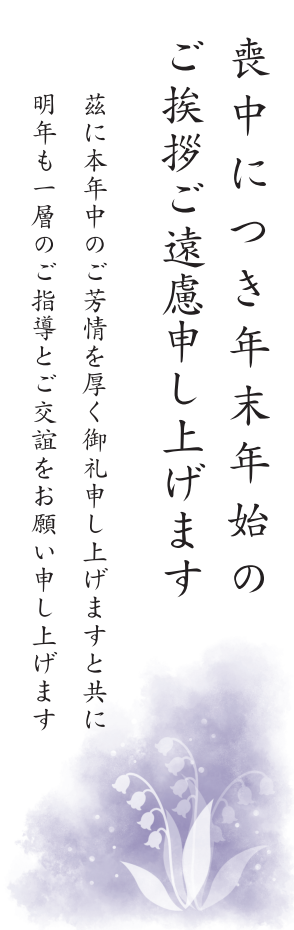 喪中につき年末年始の
ご挨拶ご遠慮申し上げます
茲に本年中のご芳情を厚く御礼申し上げますと共に
明年も一層のご指導とご交誼をお願い申し上げます